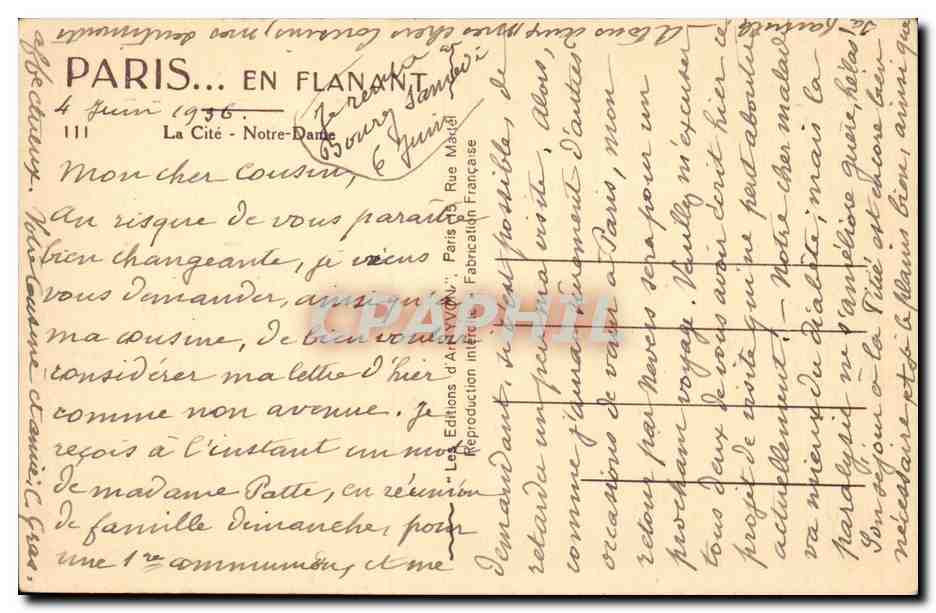 PARIS... EN FLANANT
4 Juin 1936.
111 La Cité - Notre-Dame
Bourg Samedi
6 Juin
Mon cher Cousin,
Au risque de vous paraître
bien changeante, je viens
vous demander, ainsi qu'à
ma cousine, de bien vouloir
considérer ma lettre d'hier
comme non avenue. Je
reçois à l'instant un mot
de madame Patte, en réunion
de famille dimanche, pour
une 1re communion, et me
"Les Editions d'Art YVON", Paris, 15 Rue Martel
Reproduction interdite Fabrication Française
demandant, s'il est possible, de
retarder un peu ma visite. Alors,
comme j'aurai sûrement d'autres
occasions de venir à Paris, mon
retour par Nevers sera pour un
prochain voyage. Veuillez m'excuser
tous deux de vous avoir écrit hier ce
projet de visite qui ne peut aboutir
actuellement. - Notre cher malade
va mieux du diabète; mais la
paralysie ne s'améliore guère, hélas!
Son séjour à la Pitié est encore bien
nécessaire et je le plains bien, ainsi que
sa famille
A tous deux, mes chers cousins, mes sentiments
affectueux. Votre cousine et amie, C. Gras.
CPARAMA PHIL